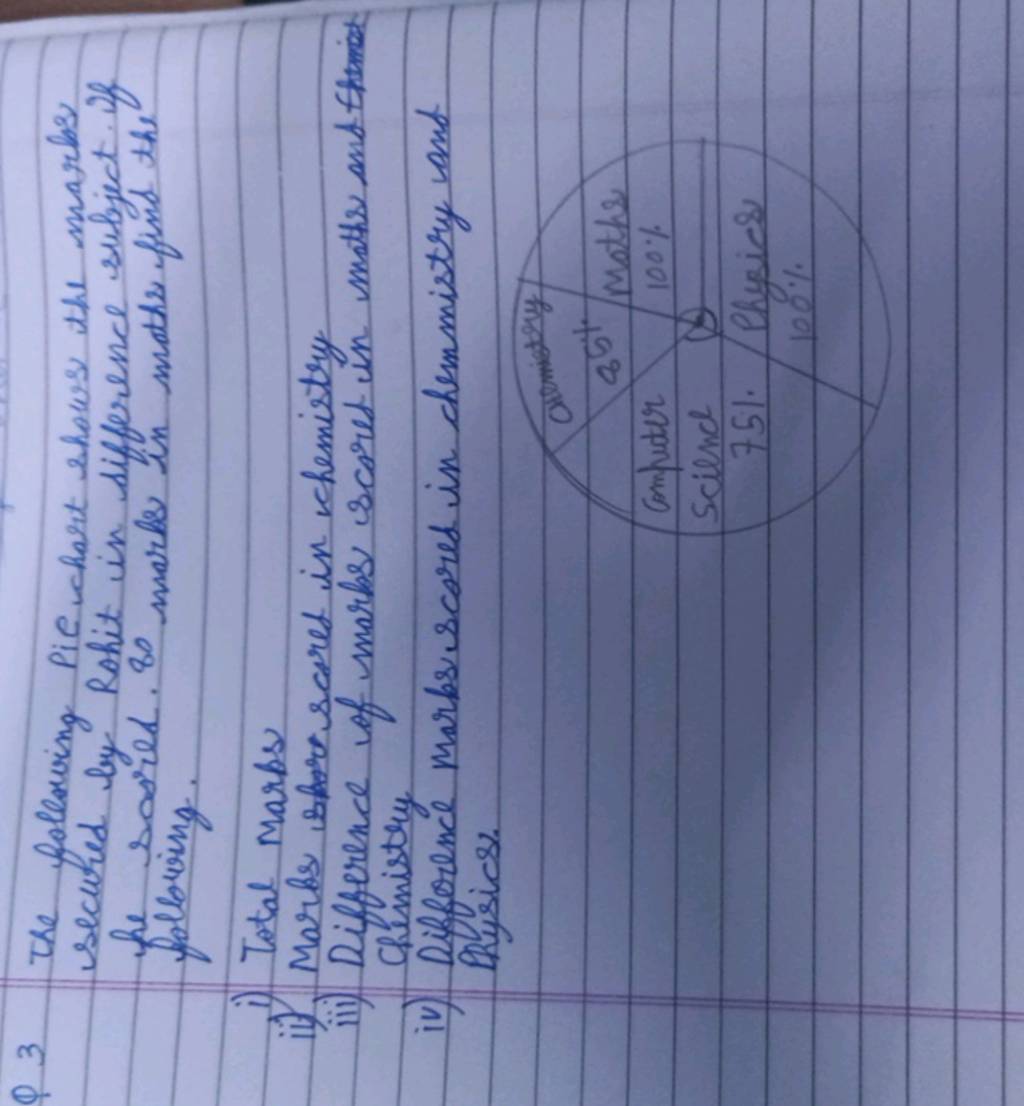 Q 3
The following Pie chart shows the marks
secured by Rohit in difference subject. If
he scored. 80 marks in maths find the
following.
i) Total Marks
ii) Marks scored in chemistry
iii) Difference of marks scored in maths and
Chemistry
iv) Difference marks scored in chemistry and
Physics.
Chemistry
85%
Maths
100%
Computer
Science
75%
Physics
100%